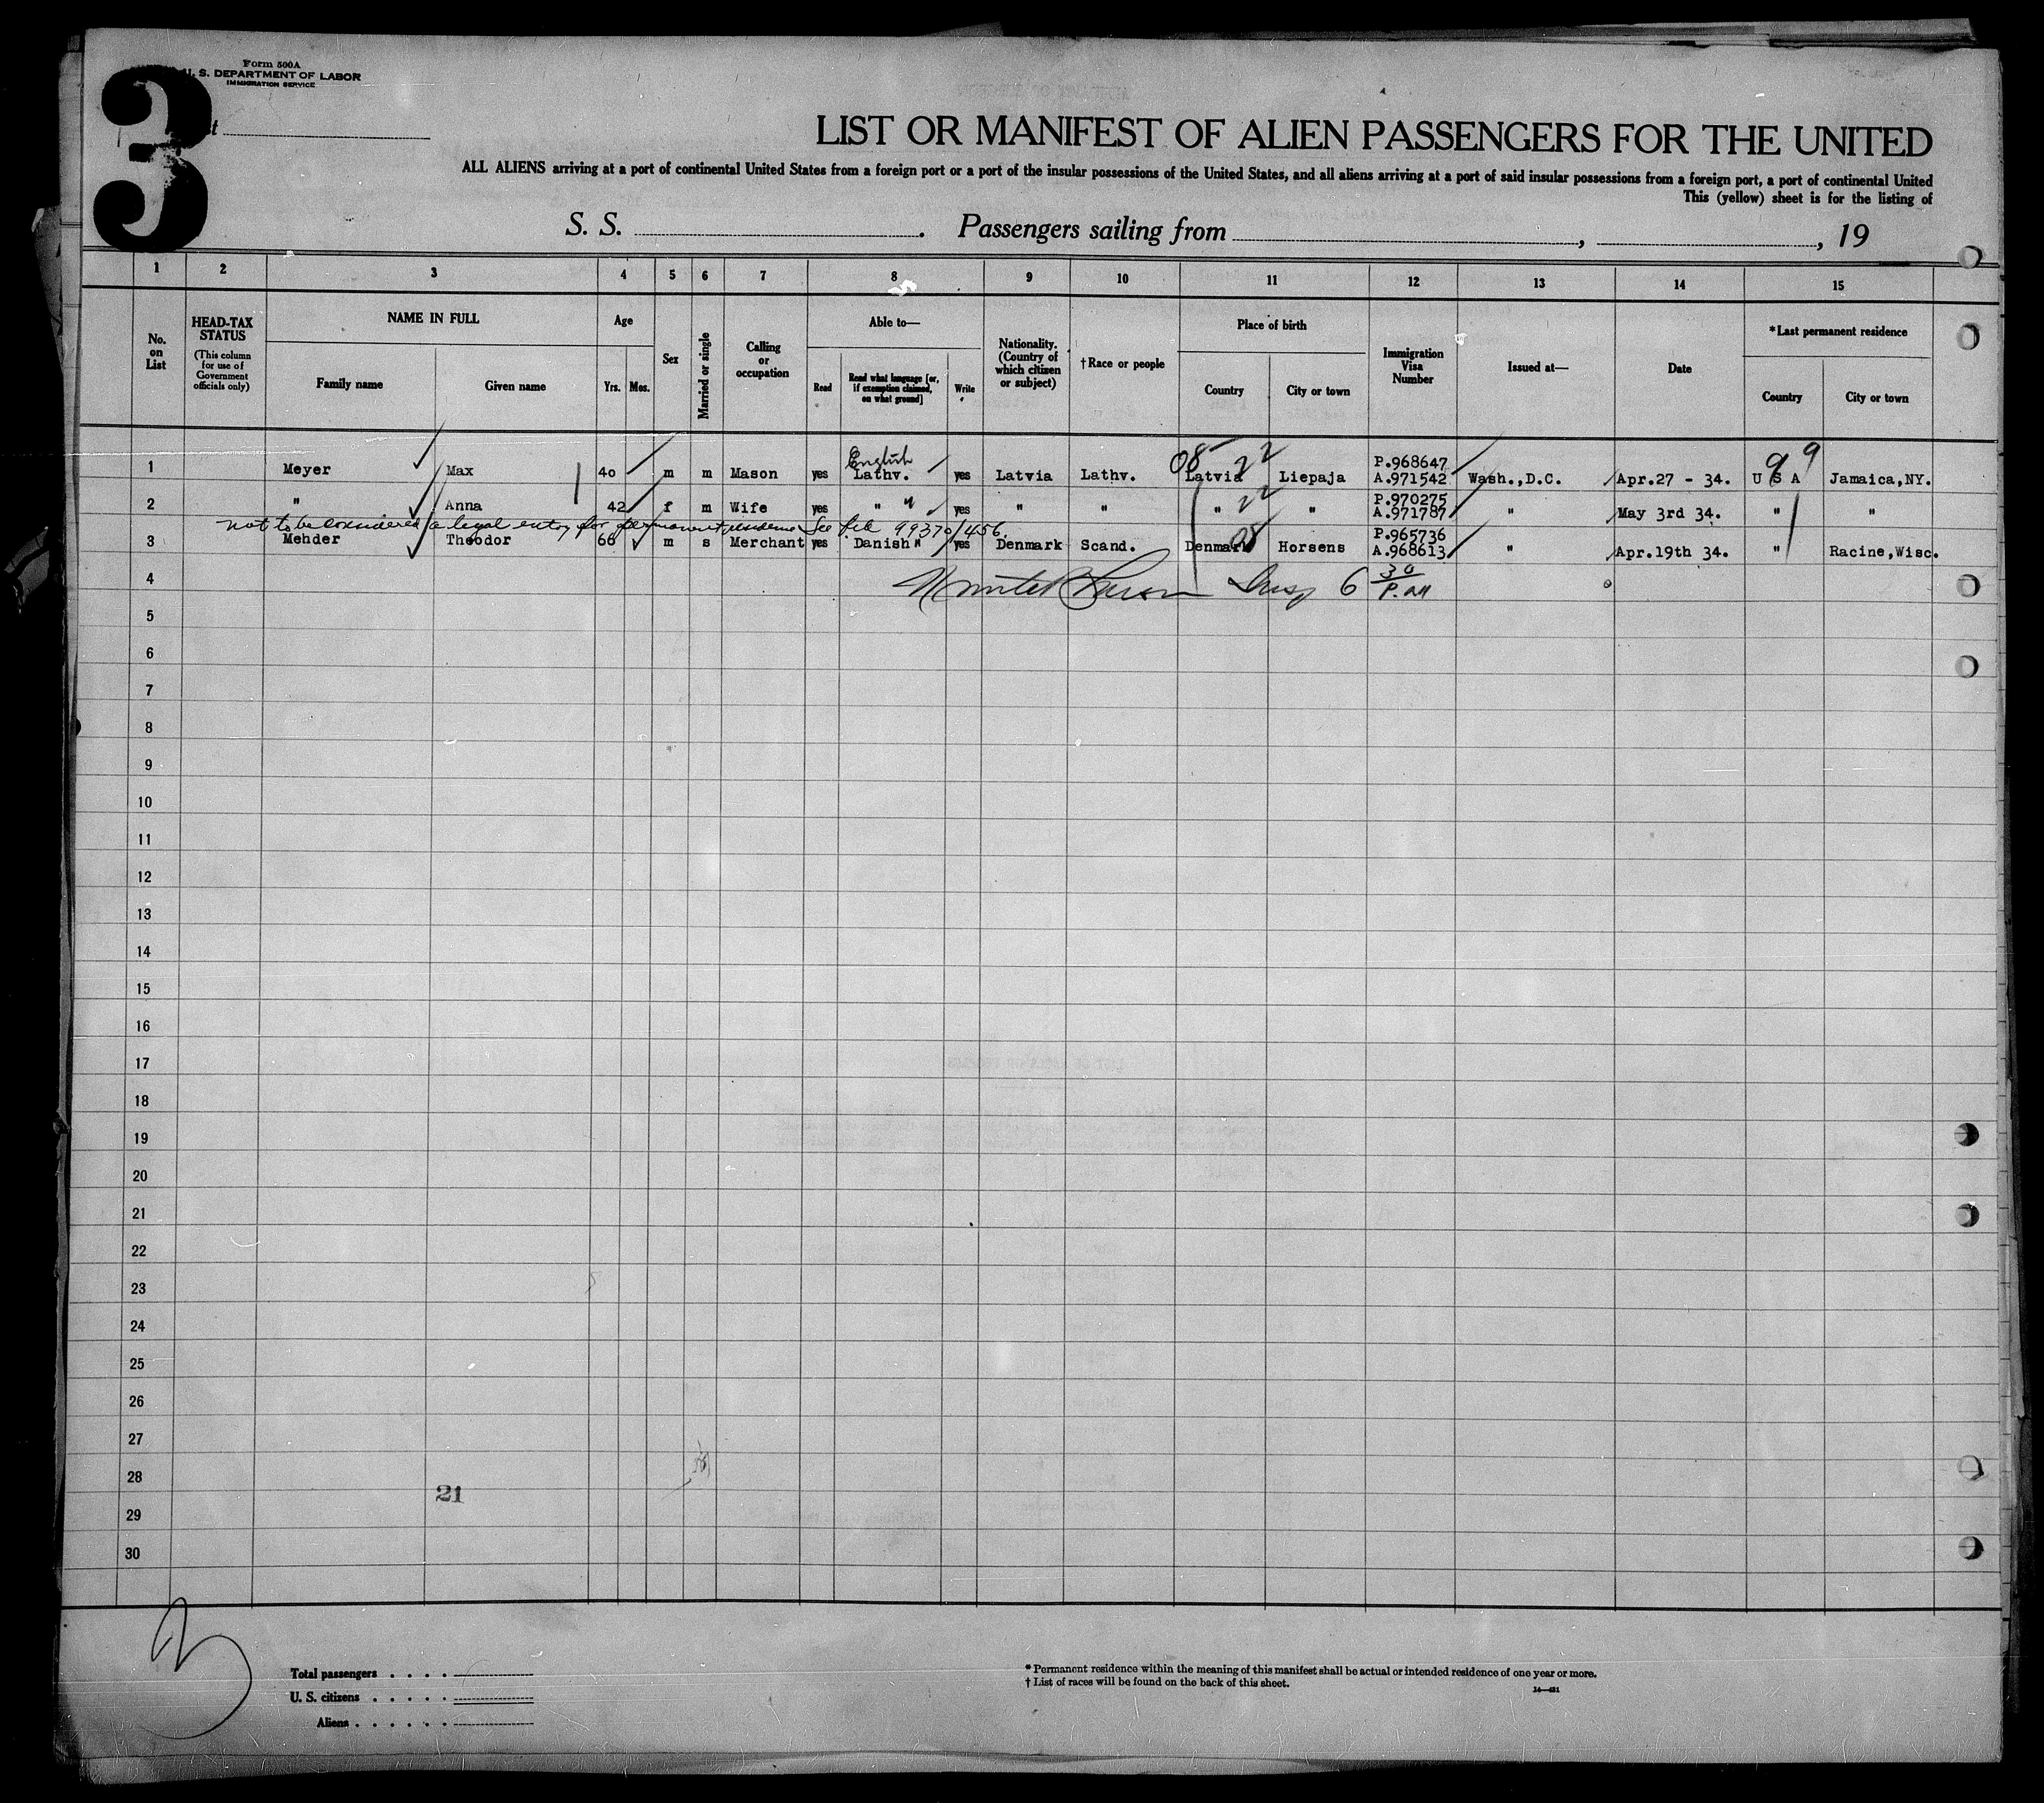 Form 500A
U. S. DEPARTMENT OF LABOR
IMMIGRATION SERVICE
3
LIST OR MANIFEST OF ALIEN PASSENGERS FOR THE UNITED
ALL ALIENS arriving at a port of continental United States from a foreign port or a port of the insular possessions of the United States, and all aliens arriving at a port of said insular possessions from a foreign port, a port of continental United
This (yellow) sheet is for the listing of
S. S. . Passengers sailing from , , 19
1 2 3 4 5 6 7 8 9 10 11 12 13 14 15
No. on List
HEAD-TAX STATUS
(This column for use of Government officials only)
NAME IN FULL
Family name Given name
Age
Yrs. Mos.
Sex
Married or single
Calling or occupation
Able to—
Read
Read what language [or, if exemption claimed, on what ground]
Write
Nationality. (Country of which citizen or subject)
†Race or people
Place of birth
Country City or town
Immigration Visa Number
Issued at—
Date
*Last permanent residence
Country City or town
English 08 22 9 9
1 Meyer Max 40 m m Mason yes Lathv. yes Latvia Lathv. Latvia Liepaja P.968647 A.971542 Wash.,D.C. Apr.27 - 34. U S A Jamaica,NY.
2 " Anna 42 f m Wife yes " " yes " " " 22 " P.970275 A.971787 " May 3rd 34. " "
not to be considered a legal entry for permanent residence See file 99370/456.
3 Mehder Theodor 66 m s Merchant yes Danish " yes Denmark Scand. Denmark 08 Horsens P.965736 A.968613 " Apr.19th 34. " Racine,Wisc.
4 Insp 6 30 P.M
5
6
7
8
9
10
11
12
13
14
15
16
17
18
19
20
21
22
23
24
25
26
27
28
21
29
30
Total passengers . . . .
U. S. citizens . . . . .
Aliens . . . . . .
* Permanent residence within the meaning of this manifest shall be actual or intended residence of one year or more.
† List of races will be found on the back of this sheet.
14—421